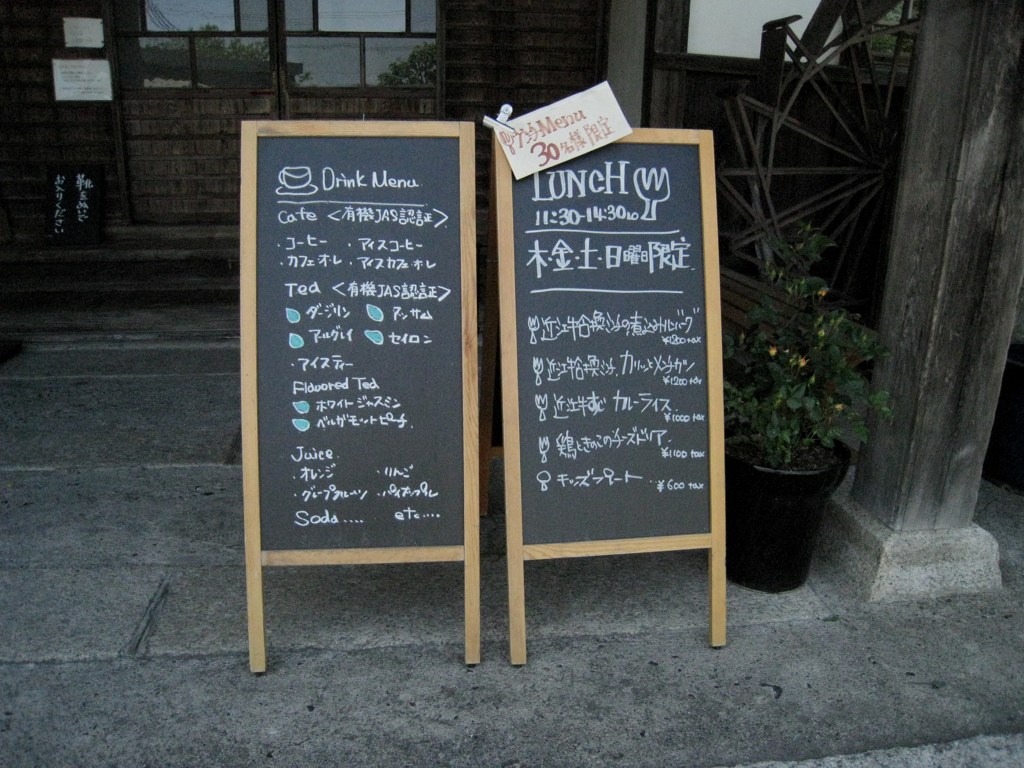 Drink Menu
Cafe <有機JAS認証>
・コーヒー ・アイスコーヒー
・カフェオレ ・アイスカフェオレ
Tea <有機JAS認証>
ダージリン アッサム
アールグレイ セイロン
・アイスティー
Flavored Tea
ホワイトジャスミン
ベルガモットピーチ
Juice
・オレンジ ・りんご
・グレープフルーツ ・パイナップル
Soda.... etc....
Menu
30名様限定
LUNCH
11:30-14:30LO
木・金・土・日曜日限定
近江牛合挽ミンチの煮込みハンバーグ
¥1200 tax
近江牛合挽ミンチ カリッとメンチカツ
¥1200 tax
近江牛すじ カレーライス
¥1000 tax
鶏ときのこのチーズドリア
¥1100 tax
キッズプレート ¥600 tax
靴をぬいで
お入りください